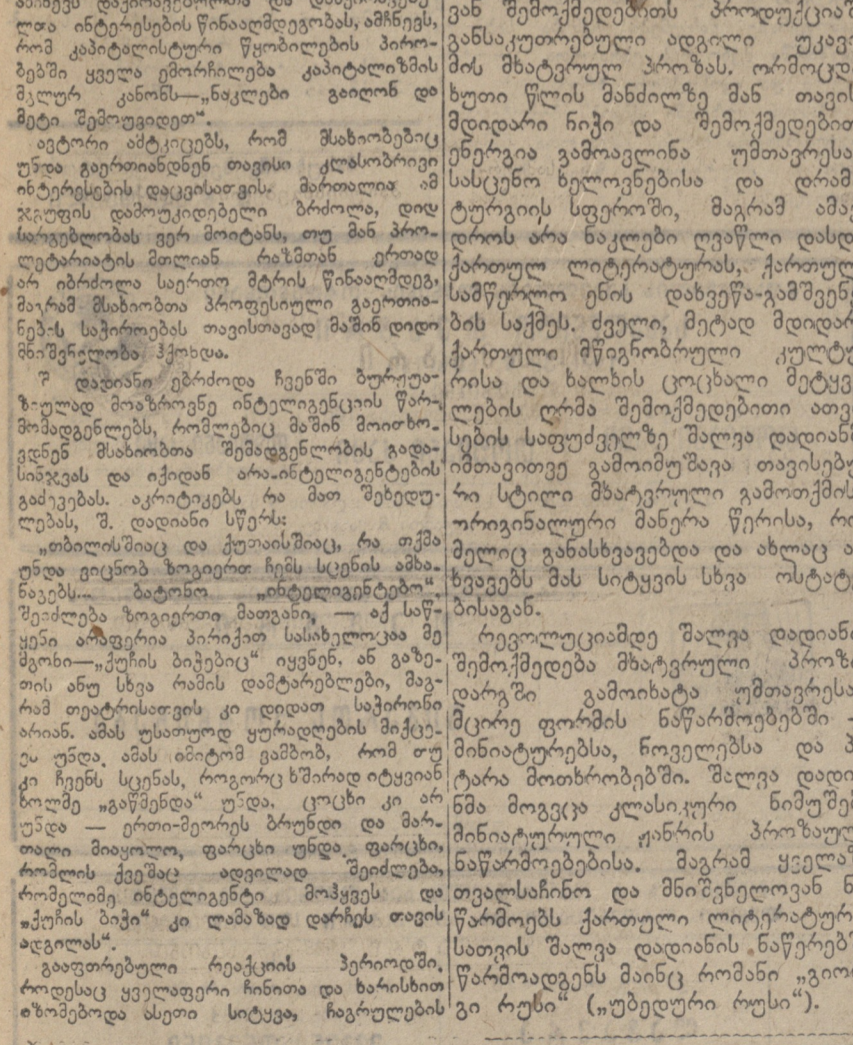 ლთა ინტერესების წინააღმდეგობას, ამჩნევს,
რომ კაპიტალისტური წყობილების პირო-
ბებში ყველა ემორჩილება კაპიტალიზმის
მგლურ კანონს—„ნაკლები გაიღონ და
მეტი შემოუვიდეთ“.
ავტორი ამტკიცებს, რომ მსახიობებიც
უნდა გაერთიანდნენ თავისი კლასობრივი
ინტერესების დაცვისათვის. მართალია ამ
ჯგუფის დამოუკიდებელი ბრძოლა, დიდ
სარგებლობას ვერ მოიტანს, თუ მან პრო-
ლეტარიატის მთლიან რაზმთან ერთად
არ იბრძოლა საერთო მტრის წინააღმდეგ,
მაგრამ მსახიობთა პროფესიული გაერთია-
ნების საჭიროებას თავისთავად მაშინ დიდი
მნიშვნელობა ჰქონდა.
შ დადიანი ებრძოდა ჩვენში ბურჟუა-
ზიულად მოაზროვნე ინტელიგენციის წარ-
მომადგენლებს, რომლებიც მაშინ მოითხო-
ვდნენ მსახიობთა შემადგენლობის გადა-
სინჯვას და იქიდან არა-ინტელიგენტების
გაძევებას. აკრიტიკებს რა მათ შეხედუ-
ლებას, შ. დადიანი სწერს:
„თბილისშიაც და ქუთაისშიაც, რა თქმა
უნდა ვიცნობ ზოგიერთ ჩემს სცენის ამხა-
ნაგებს... ბატონო „ინტელიგენტებო“,
შეიძლება ზოგიერთი მათგანი, — აქ საწ-
ყენი არაფერია პირიქით სასახელოცაა მე
მგონი—„ქუჩის ბიჭებიც“ იყვნენ. ან გაზე-
თის ანუ სხვა რამის დამტარებლები, მაგ-
რამ თეატრისათვის კი დიდათ საჭირონი
არიან. ამას უსათუოდ ყურადღების მიქცე-
ვა უნდა. ამას იმიტომ ვამბობ, რომ თუ
კი ჩვენს სცენას, როგორც ხშირად იტყვიან
ხოლმე „გაწმენდა“ უნდა, ცოცხი კი არ
უნდა — ერთი-მეორეს ბრუნდი და მარ-
თალი მიაყოლო, ფარცხი უნდა, ფარცხი,
რომლის ქვეშაც ადვილად შეიძლება,
რომელიმე ინტელიგენტი მოჰყვეს და
„ქუჩის ბიჭი“ კი ლამაზად დარჩეს თავის
ადგილას“.
გააფთრებული რეაქციის პერიოდში,
როდესაც ყველაფერი ჩინითა და ხარისხით
იზომებოდა ასეთი სიტყვა, ჩაგრულების
ვან შემოქმედებითს
განსაკუთრებული ადგილი უკავ
მის მხატვრულ პროზას. ორმოცდ
ხუთი წლის მანძილზე მან თავის
მდიდარი ნიჭი და შემოქმედებით
ენერგია გამოავლინა უმთავრესა
სასცენო ხელოვნებისა და დრამ
ტურგიის სფეროში, მაგრამ ამავ
დროს არა ნაკლები ღვაწლი დასდ
ქართულ ლიტერატურას, ქართულ
სამწერლო ენის დახვეწა-გამშვენ
ბის საქმეს. ძველი, მეტად მდიდარ
ქართული მწიგნობრული კულტუ
რისა და ხალხის ცოცხალი მეტყვ
ლების ღრმა შემოქმედებითი ათვ
სების საფუძველზე შალვა დადიანმ
იმთავითვე გამოიმუშავა თავისებუ
რი სტილი მხატვრული გამოთქმის
ორიგინალური მანერა წერისა, რო
მელიც განასხვავებდა და ახლაც ა
ხვავებს მას სიტყვის სხვა ოსტატ
ბისაგან.
რევოლუციამდე შალვა დადიანი
შემოქმედება მხატვრული პროზი
დარგში გამოიხატა უმთავრესა
მცირე ფორმის ნაწარმოებებში -
მინიატურებსა, ნოველებსა და პ
ტარა მოთხრობებში. შალვა დადი
ნმა მოგვცა კლასიკური ნიმუშებ
მინიატურული ჟანრის პროზაულ
ნაწარმოებებისა. მაგრამ ყველა
თვალსაჩინო და მნიშვნელოვან ნ
წარმოებს ქართული ლიტერატურ
სათვის შალვა დადიანის ნაწერებ
წარმოადგენს მაინც რომანი „გიო
გი რუსი“ („უბედური რუსი“).